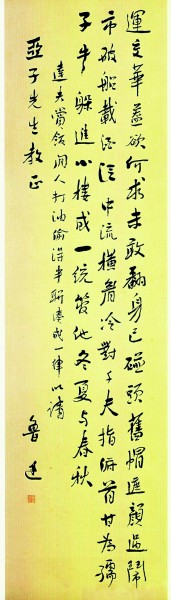 運交華蓋欲何求未敢翻身已碰頭舊帽遮顏過鬧
市破船載酒泛中流橫眉冷對千夫指俯首甘為孺
子牛躲進小樓成一統管他冬夏与春秋
達夫賞飯閑人打油偷得半聯湊成一律以請
亞子先生教正
魯迅